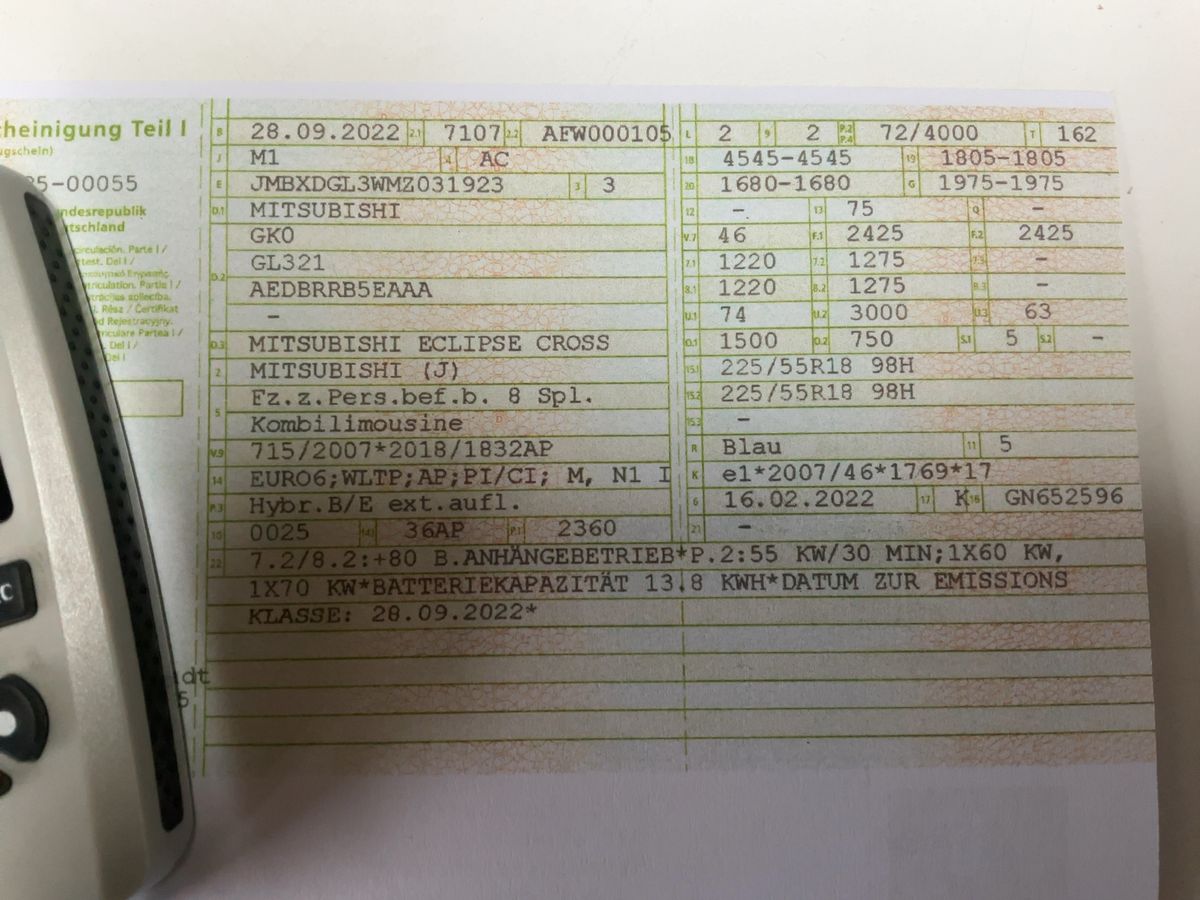 heinigung Teil I
gschein)
5-00055
ndesrepublik
tschland
circulación. Parte I /
test. Del I /
triculation. Partie I /
Rész / Certifikat
d Rejestracyjny.
riculare Partea I /
Del I /
Del I
B 28.09.2022 2.1 7107 2.2 AFW000105 L 2 9 2 P.2 P.4 72/4000 T 162
J M1 4 AC 18 4545-4545 19 1805-1805
E JMBXDGL3WMZ031923 3 3 20 1680-1680 G 1975-1975
D.1 MITSUBISHI 12 - 13 75 Q -
GK0 V.7 46 F.1 2425 F.2 2425
D.2 GL321 7.1 1220 7.2 1275 7.3 -
AEDBRRB5EAAA 8.1 1220 8.2 1275 8.3 -
- U.1 74 U.2 3000 U.3 63
D.3 MITSUBISHI ECLIPSE CROSS O.1 1500 O.2 750 S.1 5 S.2 -
2 MITSUBISHI (J) 15.1 225/55R18 98H
5 Fz.z.Pers.bef.b. 8 Spl. 15.2 225/55R18 98H
Kombilimousine 15.3 -
V.9 715/2007*2018/1832AP R Blau 11 5
14 EURO6;WLTP;AP;PI/CI; M, N1 I K e1*2007/46*1769*17
P.3 Hybr.B/E ext.aufl. 6 16.02.2022 17 K 16 GN652596
10 0025 14.1 36AP P.1 2360 21 -
22 7.2/8.2:+80 B.ANHÄNGEBETRIEB*P.2:55 KW/30 MIN;1X60 KW,
1X70 KW*BATTERIEKAPAZITÄT 13.8 KWH*DATUM ZUR EMISSIONS
KLASSE: 28.09.2022*
dt
5
C